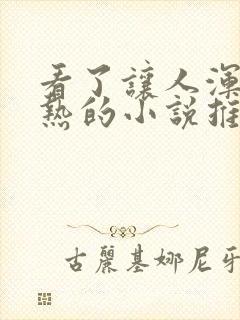 看了讓人渾
熱的小說推
古麗基娜尼牙